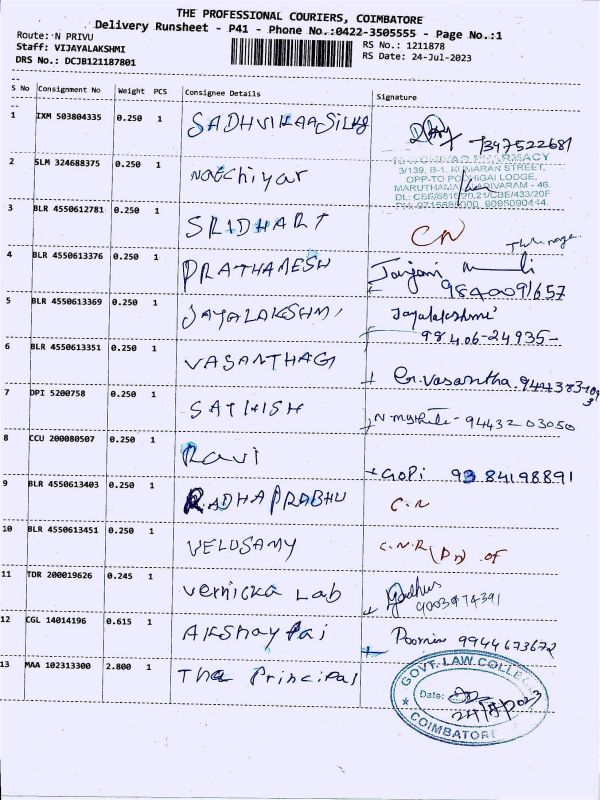 THE PROFESSIONAL COURIERS, COIMBATORE
Delivery Runsheet - P41 - Phone No.:0422-3505555 - Page No.:1
Route: N PRIVU
RS No.: 1211878
Staff: VIJAYALAKSHMI
RS Date: 24-Jul-2023
DRS No.: DCJB121187801
S No Consignment No Weight PCS Consignee Details Signature
1 IXM 503804335 0.250 1 SADHVIKAASILKS
7397522681
2 SLM 324688375 0.250 1 Natchiyar
3/139, B-1, KUMARAN STREET,
OPP-TO PODHIGAI LODGE,
3 BLR 4550612781 0.250 1 SRIDHART CN
4 BLR 4550613376 0.250 1 PRATHAMESH
9840091657
5 BLR 4550613369 0.250 1 JAYALAKSHMI Jayalakshmi
98406-24935-
6 BLR 4550613351 0.250 1 VASANTHAG G. Vasantha.
7 DPI 5200758 0.250 1 SATHISH 94432 03050
8 CCU 200080507 0.250 1 Ravi GOPi 93 84198891
9 BLR 4550613403 0.250 1 RADHAPRABHU C.N
10 BLR 4550613451 0.250 1 VELUSAMY C.N.R
11 TDR 200019626 0.245 1 Vernicka Lab
9003974391
12 CGL 14014196 0.615 1 Akshay Pai 9944673672
13 MAA 102313300 2.800 1 The Principal
GOVT. LAW COLLEGE
Date:
COIMBATORE